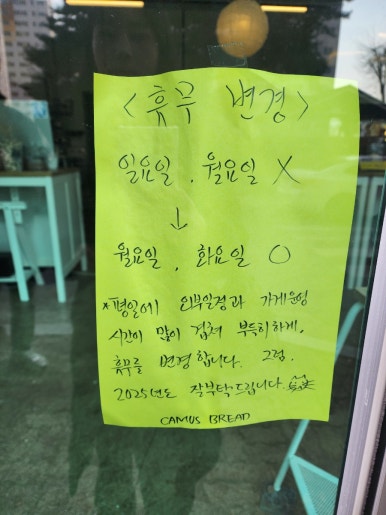 <휴무 변경>
일요일, 월요일 X
↓
월요일, 화요일 O
*평일에 외부일정과 가게운영
시간이 많이 겹쳐 부득히하게,
휴무를 변경합니다. 그럼.
2025년도 잘부탁드립니다.
CAMUS BREAD